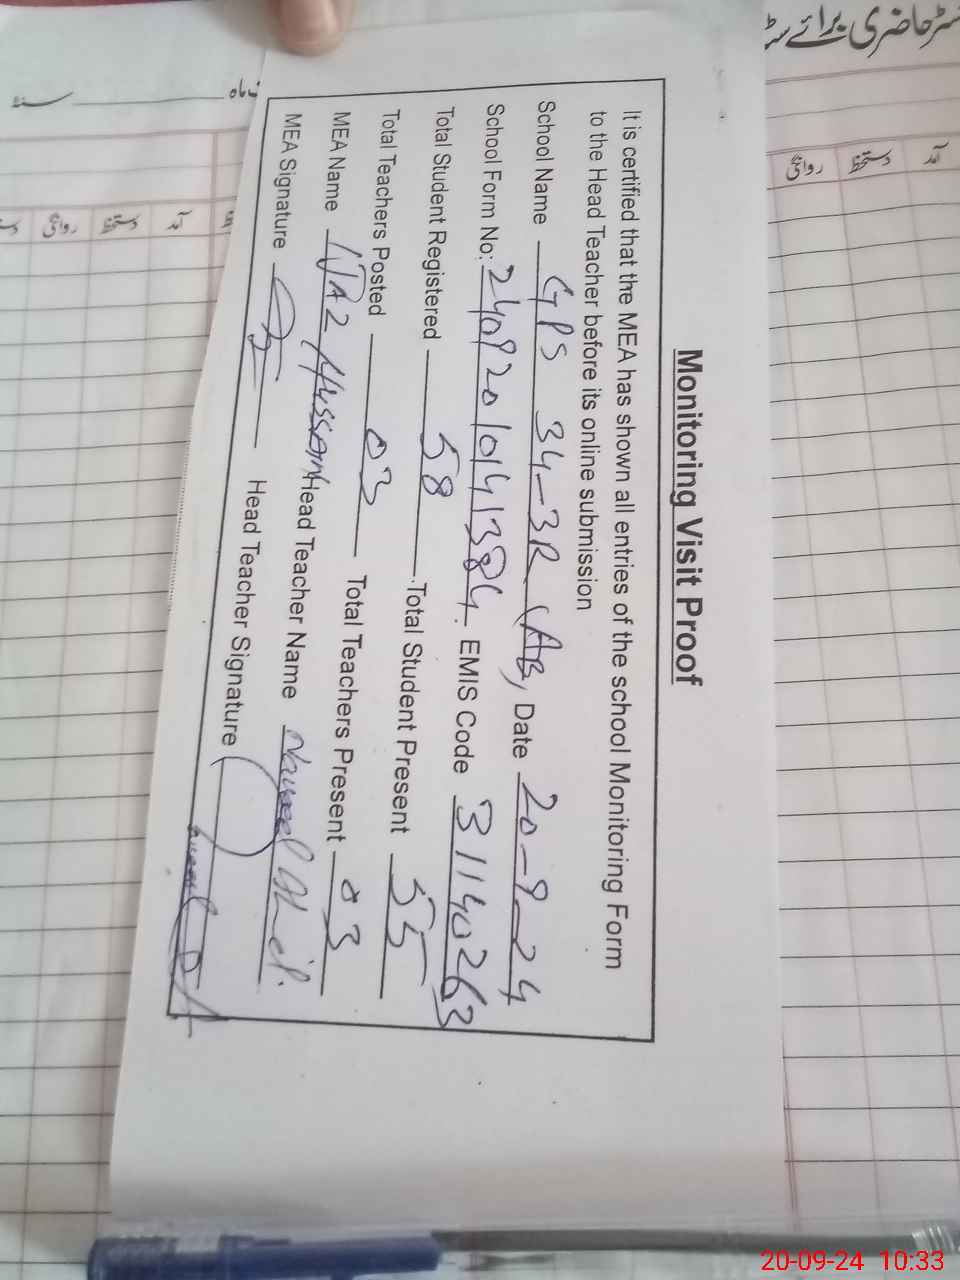 Monitoring Visit Proof
It is certified that the MEA has shown all entries of the school Monitoring Form
to the Head Teacher before its online submission
School Name GPS 34-3R (AB, Date 20-9-24
School Form No: 24092010141384. EMIS Code 31140263
Total Student Registered 58 Total Student Present 55
Total Teachers Posted 03 Total Teachers Present 03
MEA Name IJAZ Hussain Head Teacher Name
MEA Signature Head Teacher Signature
حاضری برائے
ماہ سنہ
آمد دستخط روانگی
آمد دستخط روانگی
20-09-24 10:33